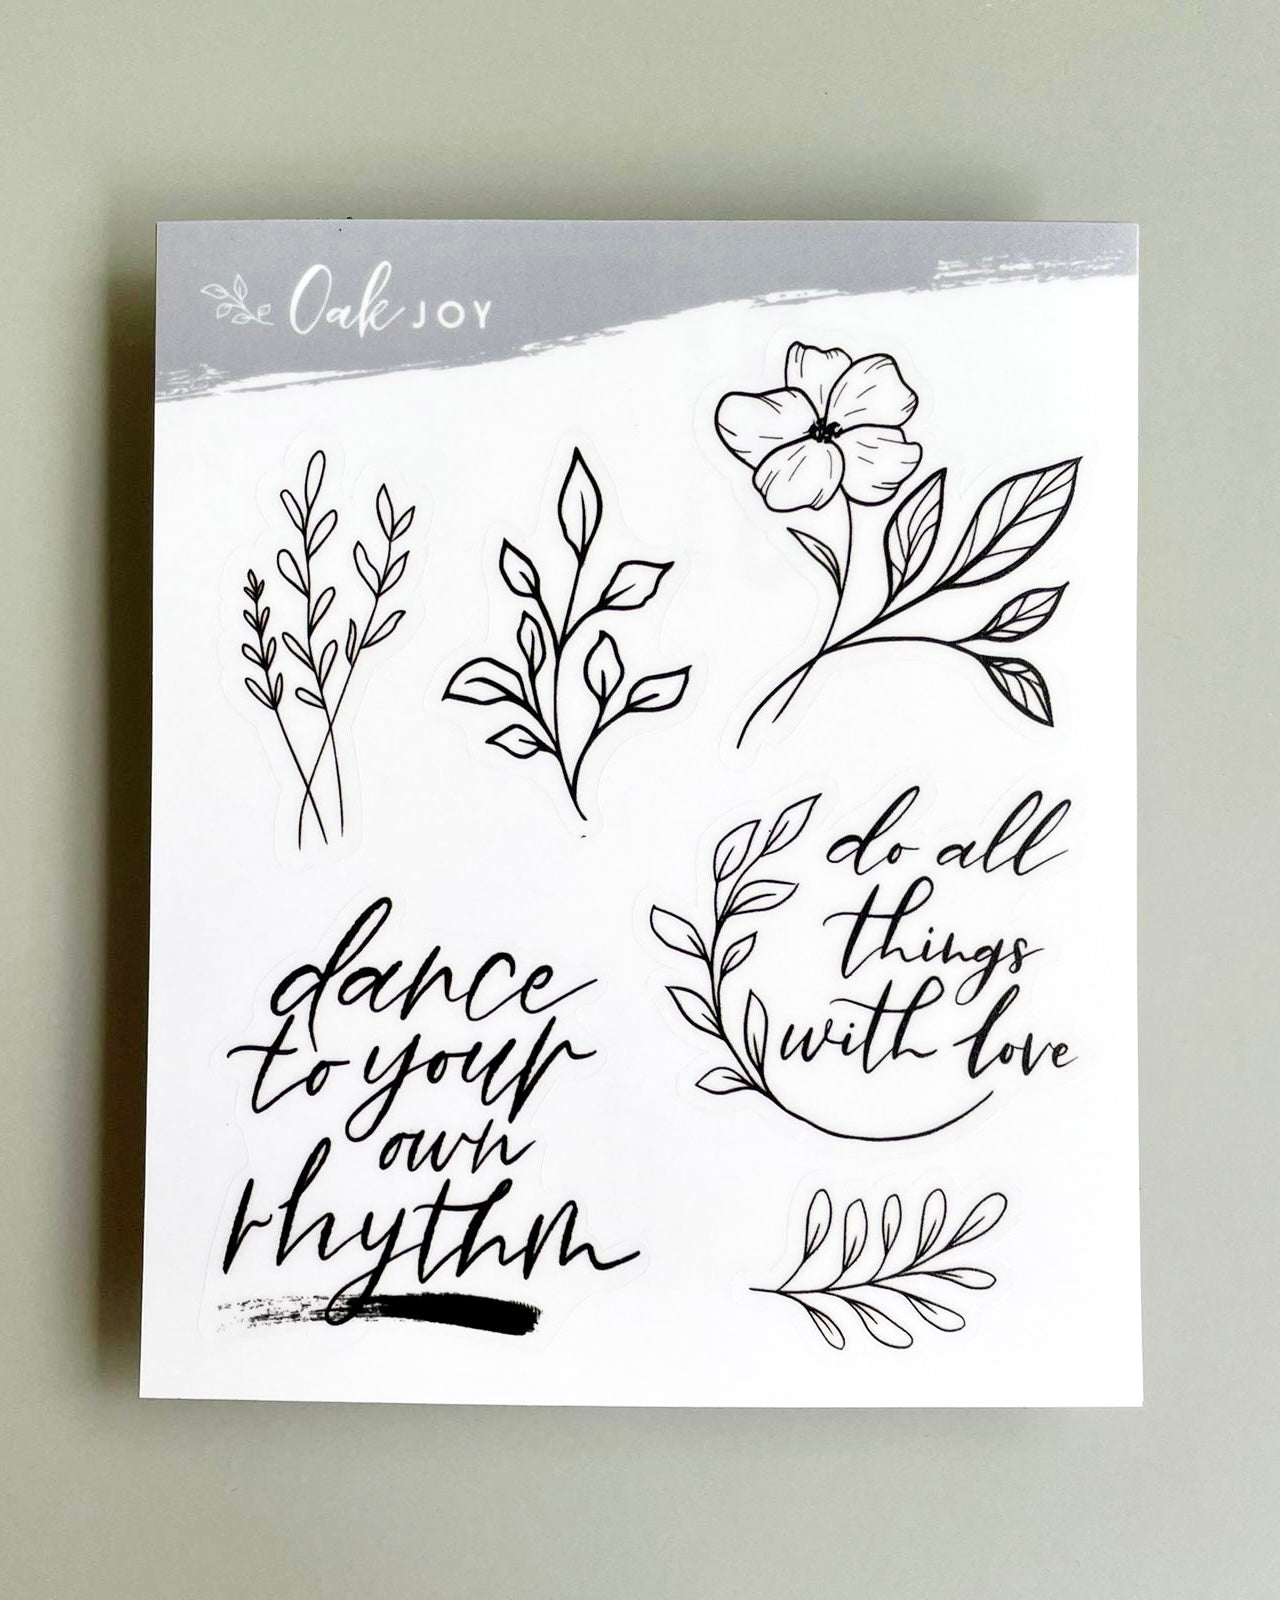 Oak JOY
do all
things
with love
dance
to your
own
rhythm